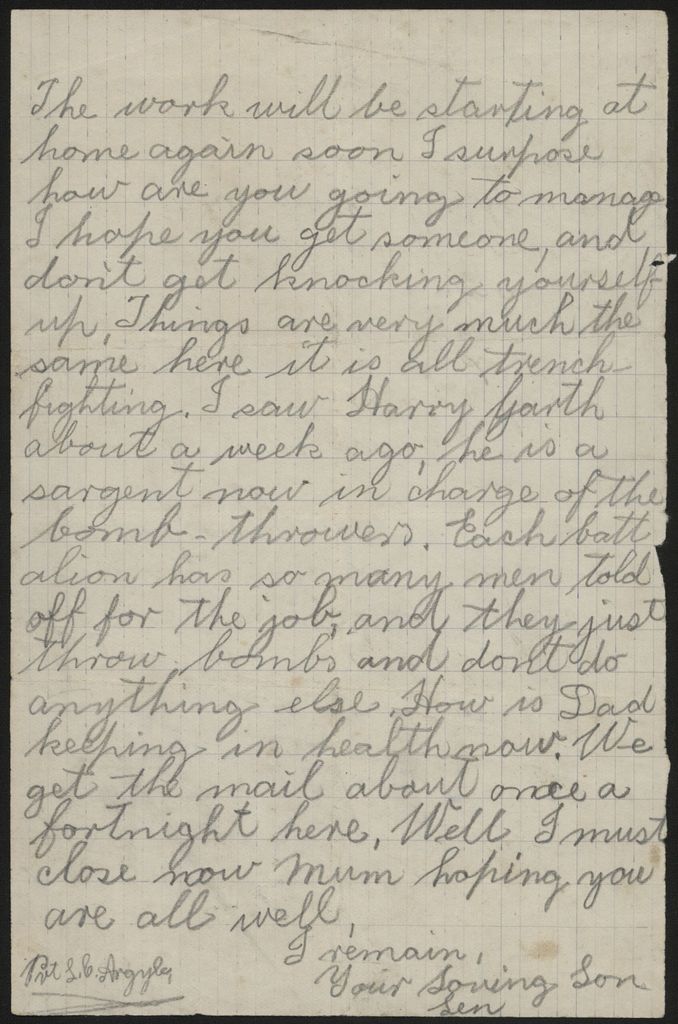 The work will be starting at
home again soon I surpose
how are you going to manage
I hope you get someone, and
don't get knocking yourself
up, Things are very much the
same here it is all trench
fighting. I saw Harry Garth
about a week ago, he is a
sargent now in charge of the
bomb-throwers. Each batt
alion has so many men told
off for the job, and they just
throw bombs and dont do
anything else. How is Dad
keeping in health now. We
get the mail about once a
fortnight here, Well I must
close now Mum hoping you
are all well,
I remain,
Your Loving Son
Len
Pvt L.C. Argyle,